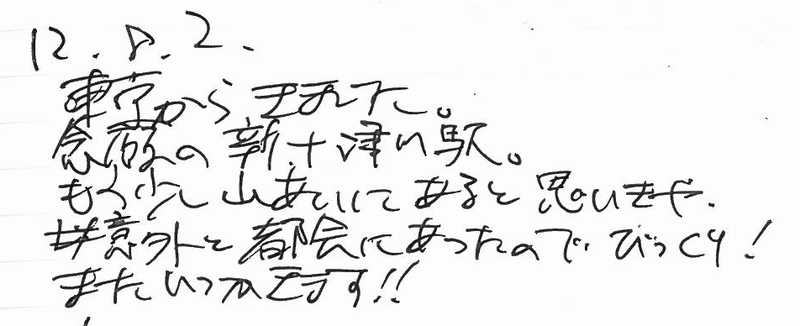 12.8.2.
東京からきました。
念願の新十津川駅。
もう少し山あいにあると思いきや、
意外と都会にあったのでびっくり!
またいつかきます!!